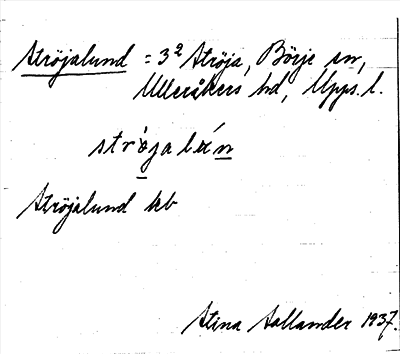 Ströjalund = 3² Ströja, Börje sn,
Ulleråkers hd, Upps. l.
ströjalún
Ströjalund kb
Stina Sallander 1937.